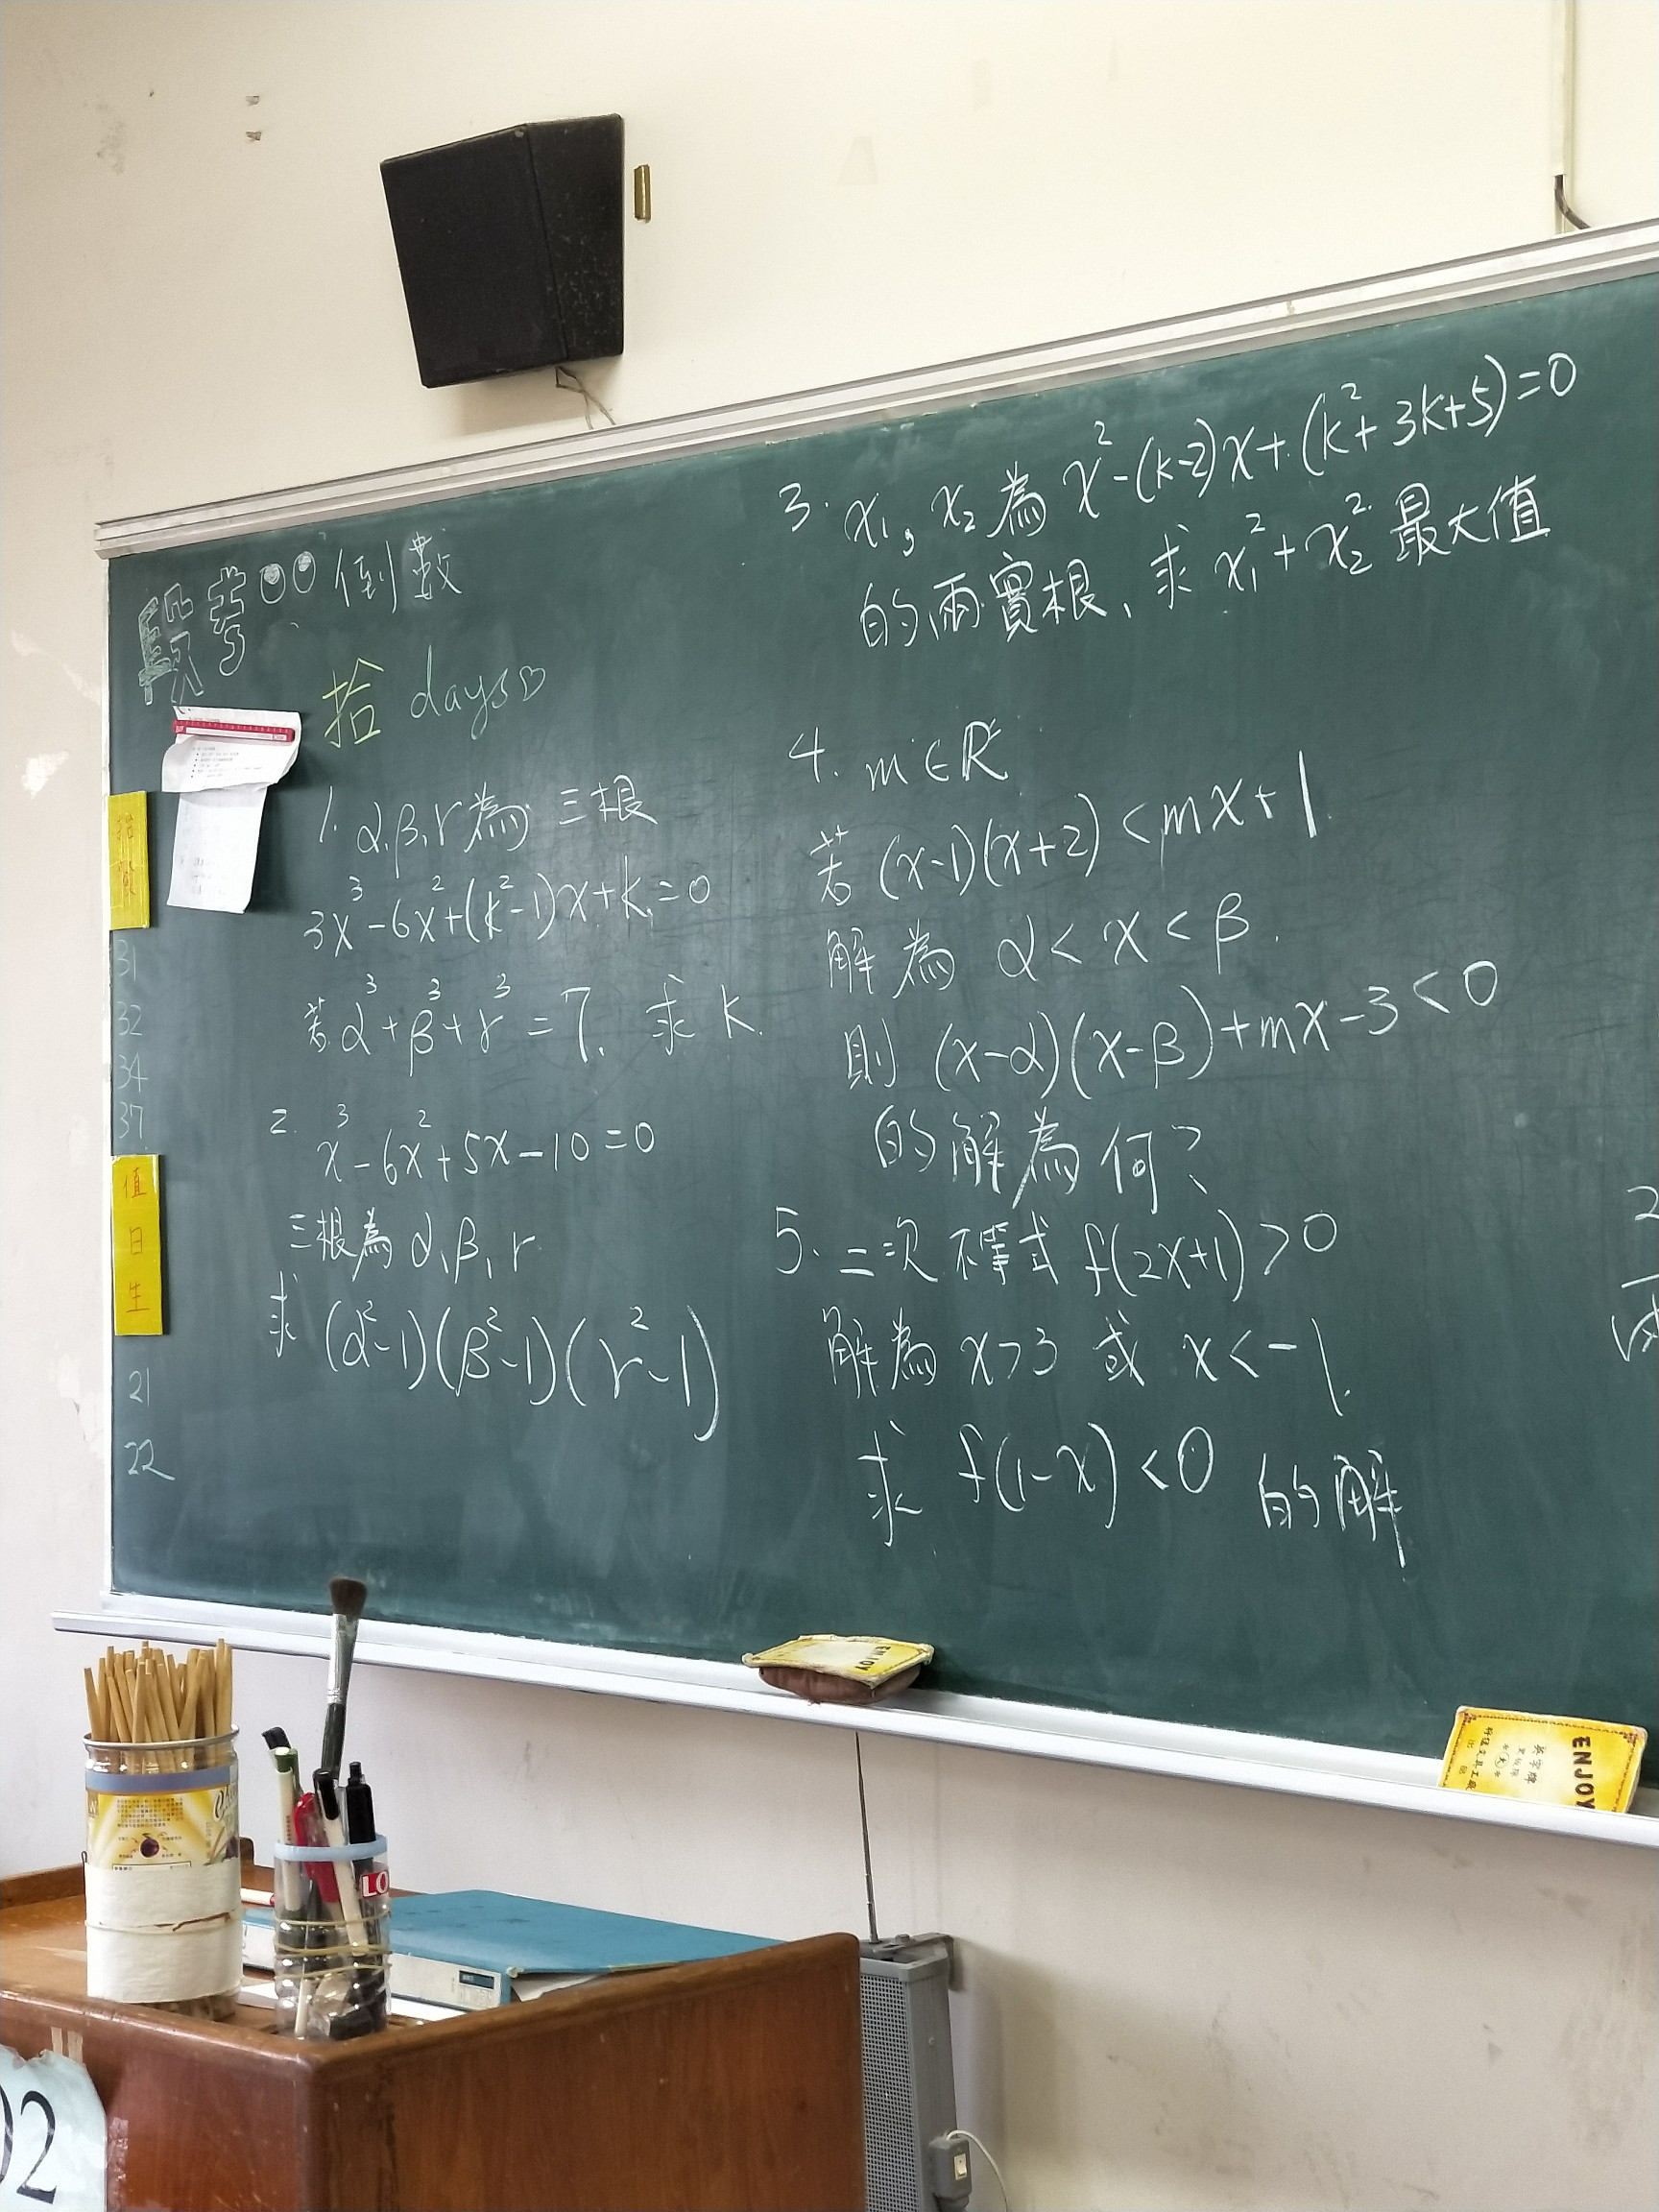 段考 倒數
拾 days♡
1. α,β,r為 三根
3x³-6x²+(k²-1)x+k=0
若α³+β³+r³=7, 求 k.
2. x³-6x²+5x-10=0
三根為 α,β,r
求 (α²-1)(β²-1)(r²-1)
3. x₁, x₂ 為 x²-(k-2)x+(k²+3k+5)=0
的兩實根, 求 x₁²+x₂² 最大值
4. m∈R
若 (x-1)(x+2)<mx+1
解為 α<x<β.
則 (x-α)(x-β)+mx-3<0
的解為何?
5. 二次不等式 f(2x+1)>0
解為 x>3 或 x<-1.
求 f(1-x)<0 的解
31
32
34
37
值日生
21
22
ENJOY
ENJOY
LO
02